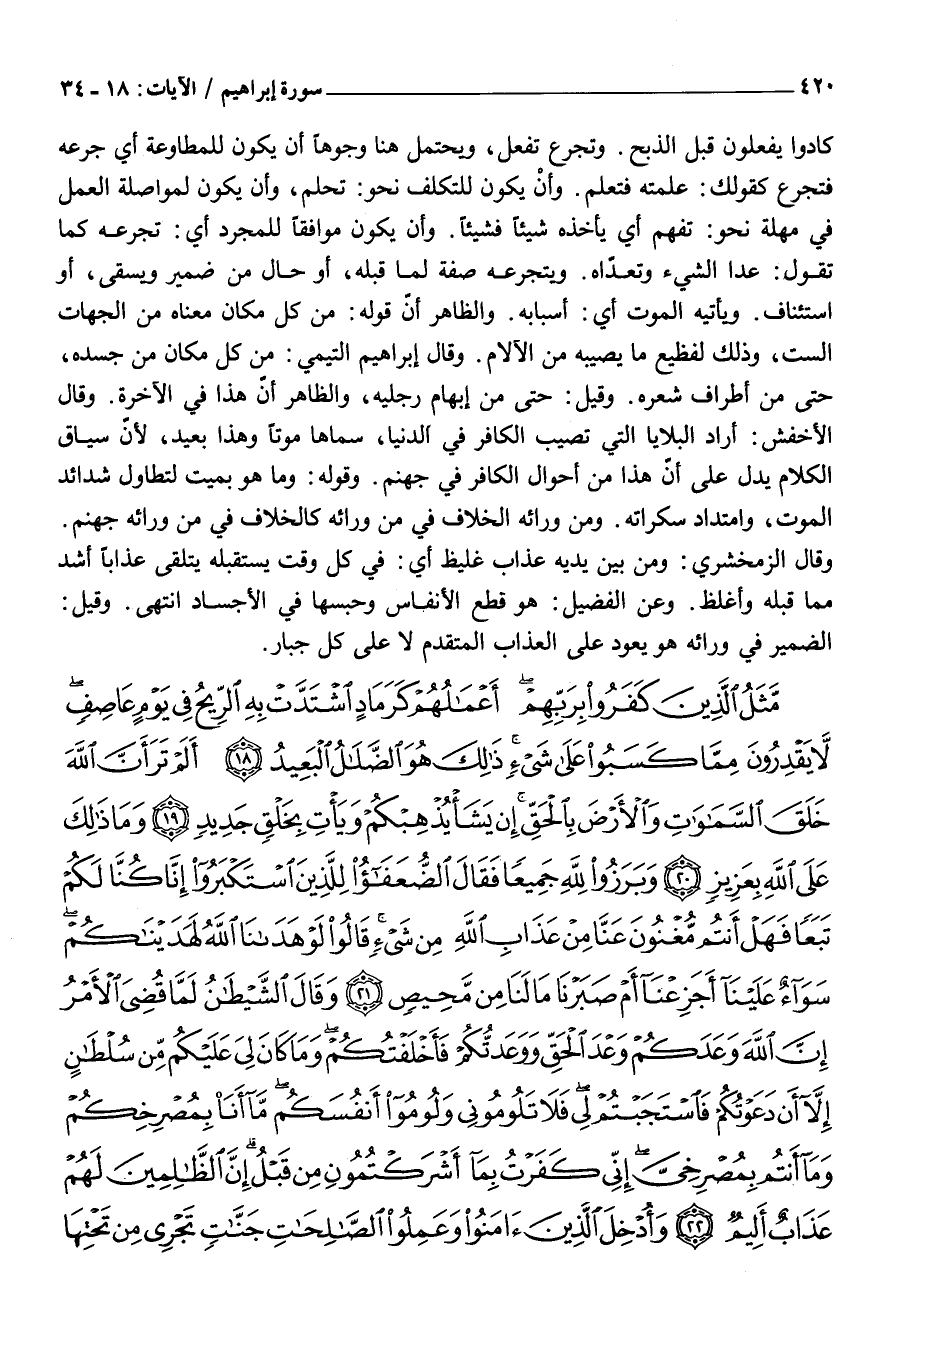 ٤٢٠ ــــــ سورة إبراهيم / الآيات: ١٨ - ٣٤
كادوا يفعلون قبل الذبح. وتجرع تفعل، ويحتمل هنا وجوهاً أن يكون للمطاوعة أي جرعه
فتجرع كقولك: علمته فتعلم. وأنْ يكون للتكلف نحو: تحلم، وأن يكون لمواصلة العمل
في مهلة نحو: تفهم أي يأخذه شيئاً فشيئاً. وأن يكون موافقاً للمجرد أي: تجرعه كما
تقول: عدا الشيء وتعدّاه. ويتجرعه صفة لما قبله، أو حال من ضمير ويسقى، أو
استئناف. ويأتيه الموت أي: أسبابه. والظاهر أنّ قوله: من كل مكان معناه من الجهات
الست، وذلك لفظيع ما يصيبه من الآلام. وقال إبراهيم التيمي: من كل مكان من جسده،
حتى من أطراف شعره. وقيل: حتى من إبهام رجليه، والظاهر أنّ هذا في الآخرة. وقال
الأخفش: أراد البلايا التي تصيب الكافر في الدنيا، سماها موتاً وهذا بعيد، لأنّ سياق
الكلام يدل على أنّ هذا من أحوال الكافر في جهنم. وقوله: وما هو بميت لتطاول شدائد
الموت، وامتداد سكراته. ومن ورائه الخلاف في من ورائه كالخلاف في من ورائه جهنم.
وقال الزمخشري: ومن بين يديه عذاب غليظ أي: في كل وقت يستقبله يتلقى عذاباً أشد
مما قبله وأغلظ. وعن الفضيل: هو قطع الأنفاس وحبسها في الأجساد انتهى. وقيل:
الضمير في ورائه هو يعود على العذاب المتقدم لا على كل جبار.
مَّثَلُ ٱلَّذِينَ كَفَرُوا۟ بِرَبِّهِمْ ۖ أَعْمَـٰلُهُمْ كَرَمَادٍ ٱشْتَدَّتْ بِهِ ٱلرِّيحُ فِى يَوْمٍ عَاصِفٍ ۖ
لَّا يَقْدِرُونَ مِمَّا كَسَبُوا۟ عَلَىٰ شَىْءٍ ۚ ذَٰلِكَ هُوَ ٱلضَّلَـٰلُ ٱلْبَعِيدُ ﴿١٨﴾ أَلَمْ تَرَ أَنَّ ٱللَّهَ
خَلَقَ ٱلسَّمَـٰوَٰتِ وَٱلْأَرْضَ بِٱلْحَقِّ ۚ إِن يَشَأْ يُذْهِبْكُمْ وَيَأْتِ بِخَلْقٍ جَدِيدٍ ﴿١٩﴾ وَمَا ذَٰلِكَ
عَلَى ٱللَّهِ بِعَزِيزٍ ﴿٢٠﴾ وَبَرَزُوا۟ لِلَّهِ جَمِيعًا فَقَالَ ٱلضُّعَفَـٰٓؤُا۟ لِلَّذِينَ ٱسْتَكْبَرُوٓا۟ إِنَّا كُنَّا لَكُمْ
تَبَعًا فَهَلْ أَنتُم مُّغْنُونَ عَنَّا مِنْ عَذَابِ ٱللَّهِ مِن شَىْءٍ ۚ قَالُوا۟ لَوْ هَدَىٰنَا ٱللَّهُ لَهَدَيْنَـٰكُمْ ۖ
سَوَآءٌ عَلَيْنَآ أَجَزِعْنَآ أَمْ صَبَرْنَا مَا لَنَا مِن مَّحِيصٍ ﴿٢١﴾ وَقَالَ ٱلشَّيْطَـٰنُ لَمَّا قُضِىَ ٱلْأَمْرُ
إِنَّ ٱللَّهَ وَعَدَكُمْ وَعْدَ ٱلْحَقِّ وَوَعَدتُّكُمْ فَأَخْلَفْتُكُمْ ۖ وَمَا كَانَ لِىَ عَلَيْكُم مِّن سُلْطَـٰنٍ
إِلَّآ أَن دَعَوْتُكُمْ فَٱسْتَجَبْتُمْ لِى ۖ فَلَا تَلُومُونِى وَلُومُوٓا۟ أَنفُسَكُم ۖ مَّآ أَنَا۠ بِمُصْرِخِكُمْ
وَمَآ أَنتُم بِمُصْرِخِىَّ ۖ إِنِّى كَفَرْتُ بِمَآ أَشْرَكْتُمُونِ مِن قَبْلُ ۗ إِنَّ ٱلظَّـٰلِمِينَ لَهُمْ
عَذَابٌ أَلِيمٌ ﴿٢٢﴾ وَأُدْخِلَ ٱلَّذِينَ ءَامَنُوا۟ وَعَمِلُوا۟ ٱلصَّـٰلِحَـٰتِ جَنَّـٰتٍ تَجْرِى مِن تَحْتِهَا